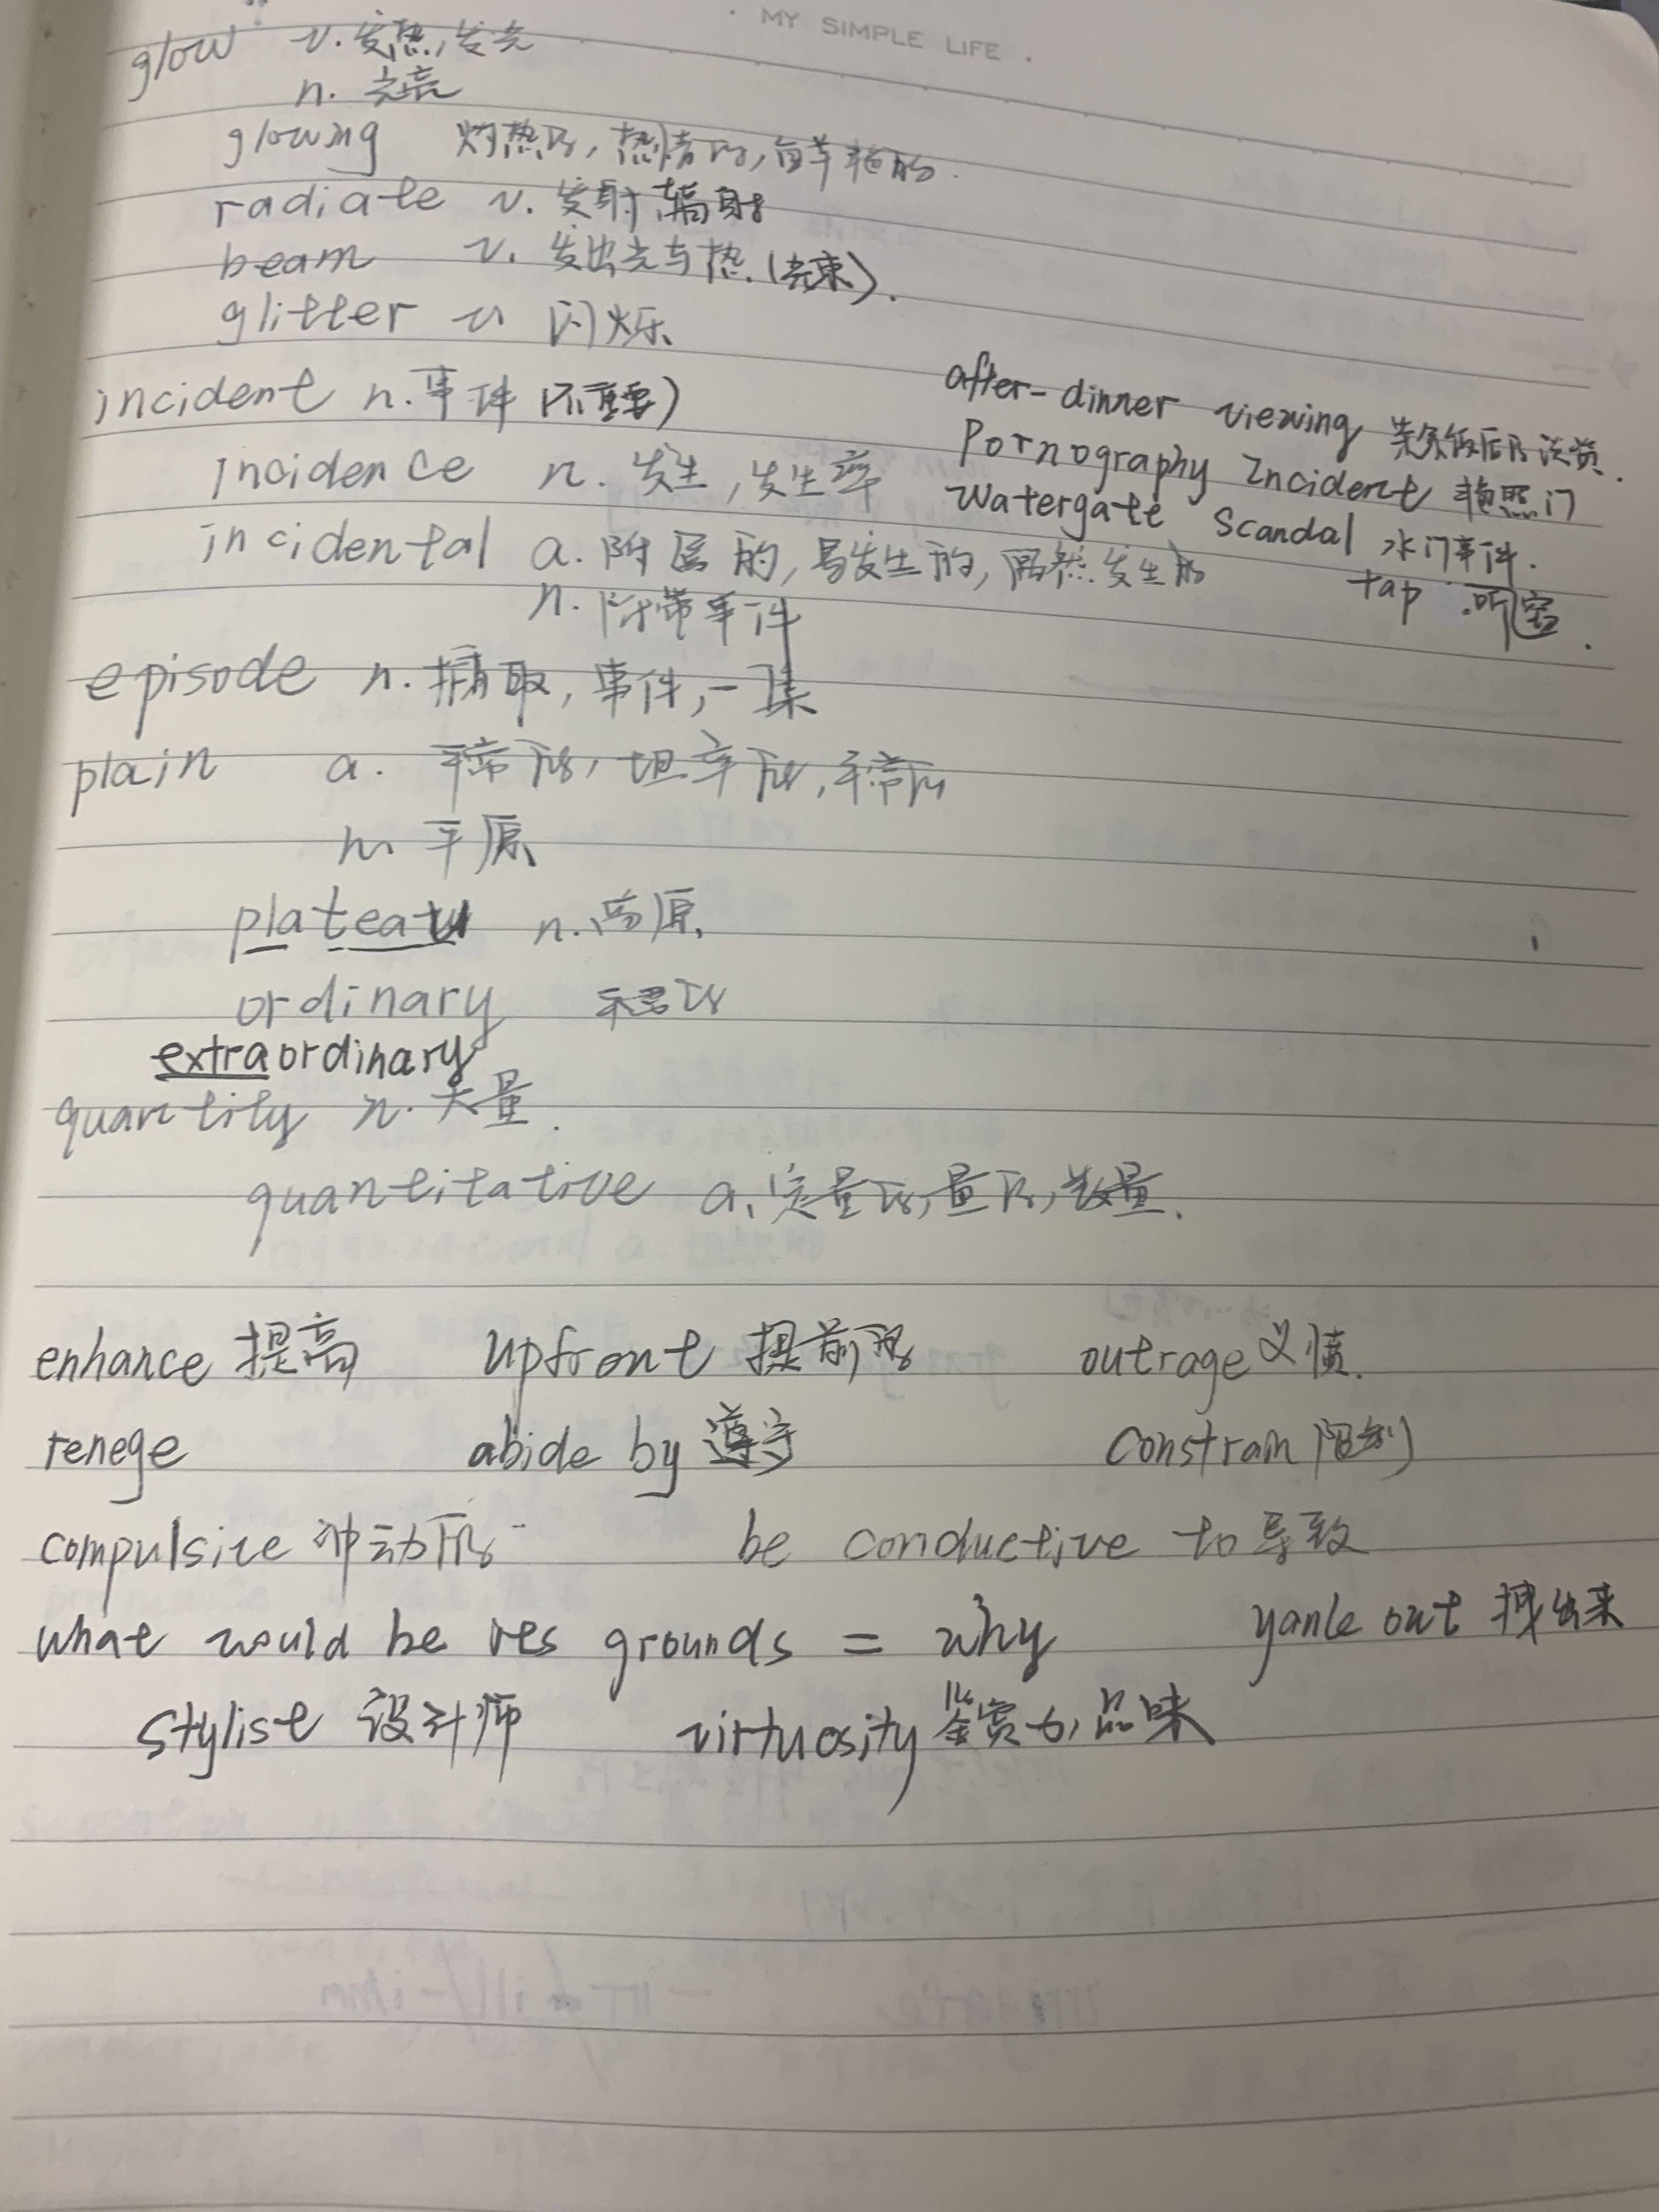 · MY SIMPLE LIFE ·
glow v. 发热,发光
n. 光亮
glowing 灼热的, 热情的, 鲜艳的.
radiate v. 发射 辐射
beam v. 发出光与热.(光束).
glitter v. 闪烁.
incident n. 事件 (不重要)
incidence n. 发生, 发生率
incidental a. 附属的, 易发生的, 偶然发生的
n. 附带事件
after-dinner viewing 茶余饭后的谈资.
Pornography Incident 艳照门
Watergate Scandal 水门事件.
tap 听.
episode n. 摘取, 事件, 一集
plain a. 平常的, 坦率的, 平常的
n. 平原
plateau n. 高原.
ordinary 的
extraordinary
quantity n. 大量.
quantitative a. 定量的, 量的, 数量.
enhance 提高 upfront 提前的 outrage 义愤.
renege abide by 遵守 constrain 限制
compulsive 冲动的 be conductive to 导致
what would be grounds = why yank out 拽出来
stylist 设计师 virtuosity 鉴赏力, 品味